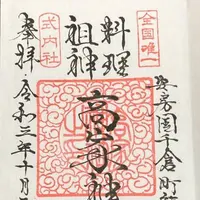 安房国千倉町
全国唯一
料理
祖神
高家神
式内社
奉拝
令和三年十月